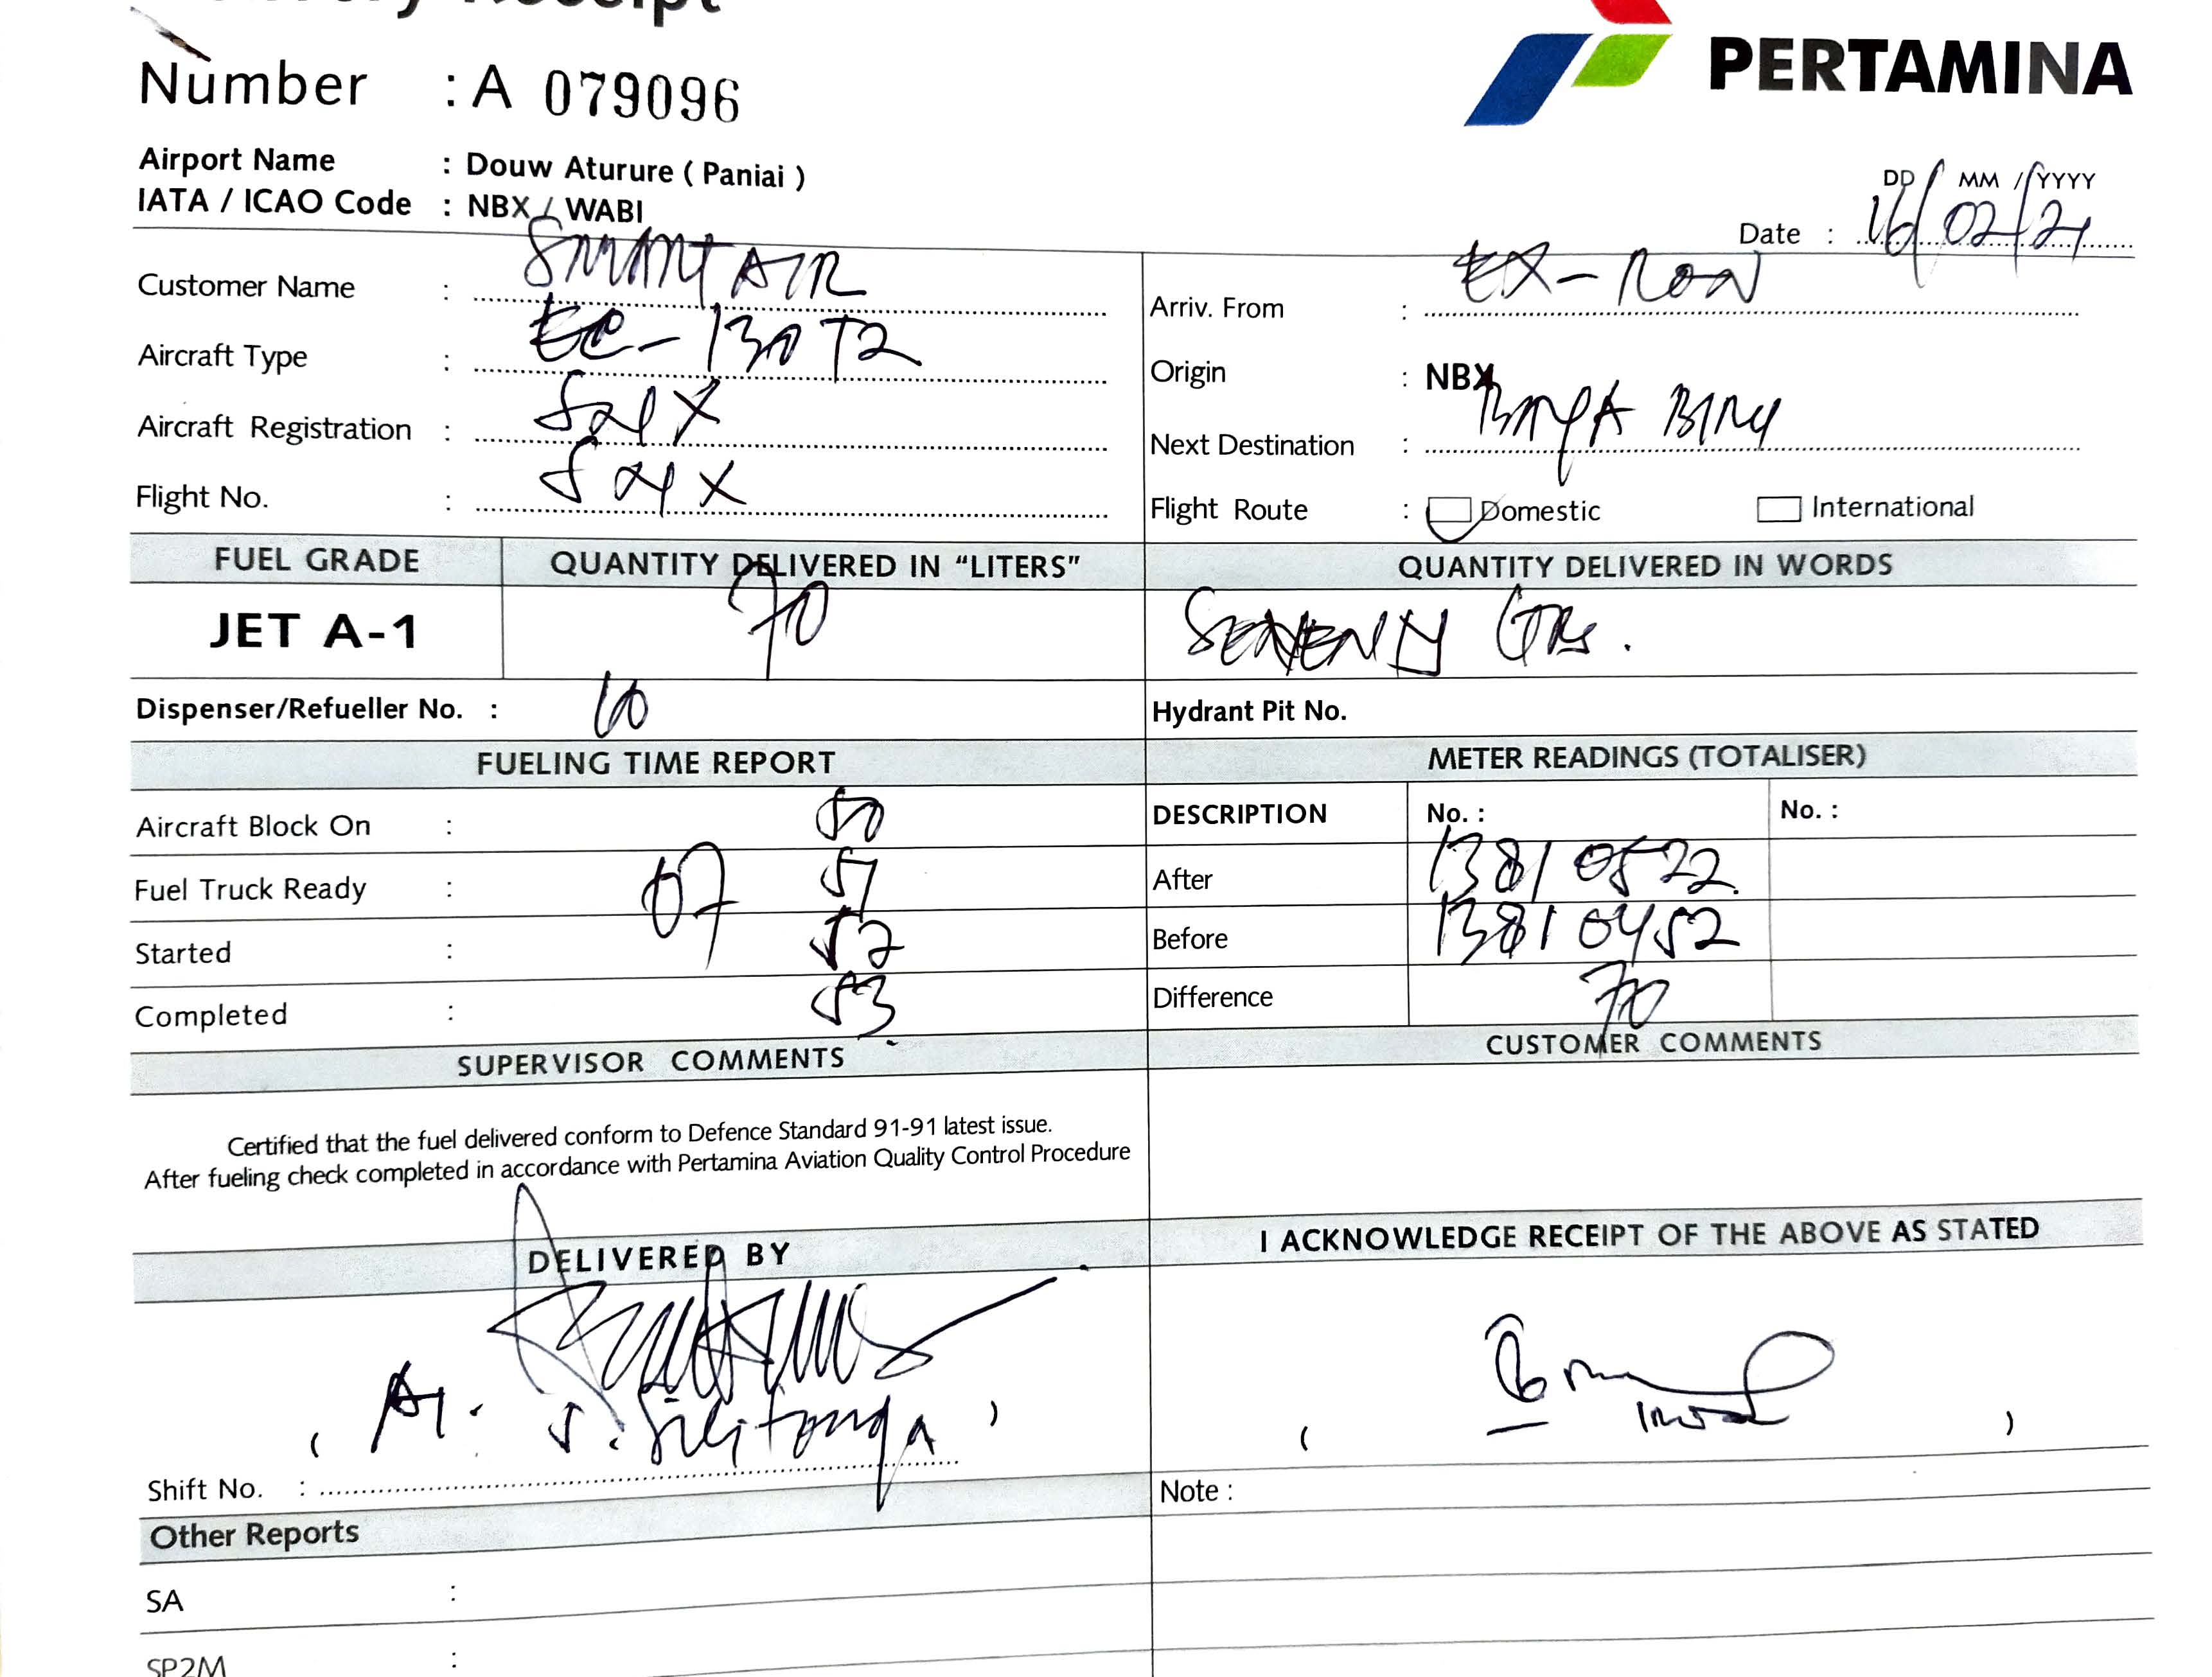 Receipt
PERTAMINA
Number : A 079096
Airport Name : Douw Aturure ( Paniai )
IATA / ICAO Code : NBX / WABI
DD / MM / YYYY
Date : 16/02/21
Customer Name : SMART AIR
Arriv. From : EX-RON
Aircraft Type : EC-130T2
Origin : NBX
Aircraft Registration :
Next Destination :
Flight No. :
Flight Route : Domestic International
FUEL GRADE QUANTITY DELIVERED IN “LITERS” QUANTITY DELIVERED IN WORDS
JET A-1 70 SEVENTY LTRS.
Dispenser/Refueller No. : 10 Hydrant Pit No.
FUELING TIME REPORT METER READINGS (TOTALISER)
Aircraft Block On : 50
DESCRIPTION No. : No. :
Fuel Truck Ready : 07 51
After 13810522
Started : 52
Before 13810452
Completed : 53
Difference 70
SUPERVISOR COMMENTS CUSTOMER COMMENTS
Certified that the fuel delivered conform to Defence Standard 91-91 latest issue.
After fueling check completed in accordance with Pertamina Aviation Quality Control Procedure
DELIVERED BY I ACKNOWLEDGE RECEIPT OF THE ABOVE AS STATED
( J. Silitonga ) ( )
Shift No. : Note :
Other Reports
SA :
SP2M :